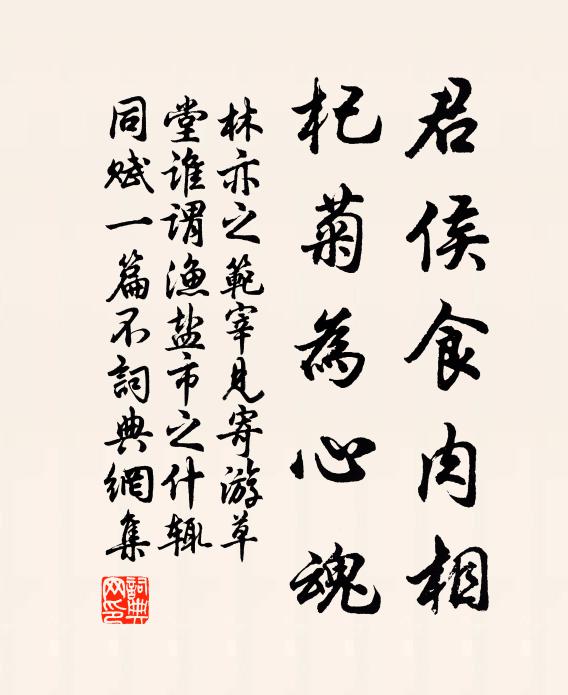 君侯食肉相
杞菊為心魂
林亦之範宰見寄游草
堂誰謂漁盐市之什輒
同賦一篇不詞典網集
詞典网印